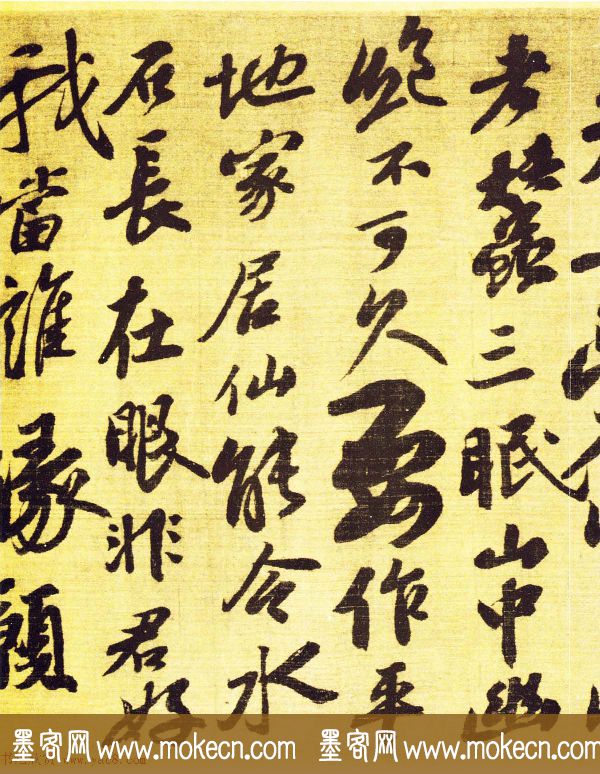 老蠶三眠山中幽
絶不可久要作平
地家居仙能令水
石長在眼非君好
我當誰緣願
墨客网 www.mokecn.com 墨客网 www.mokecn.com